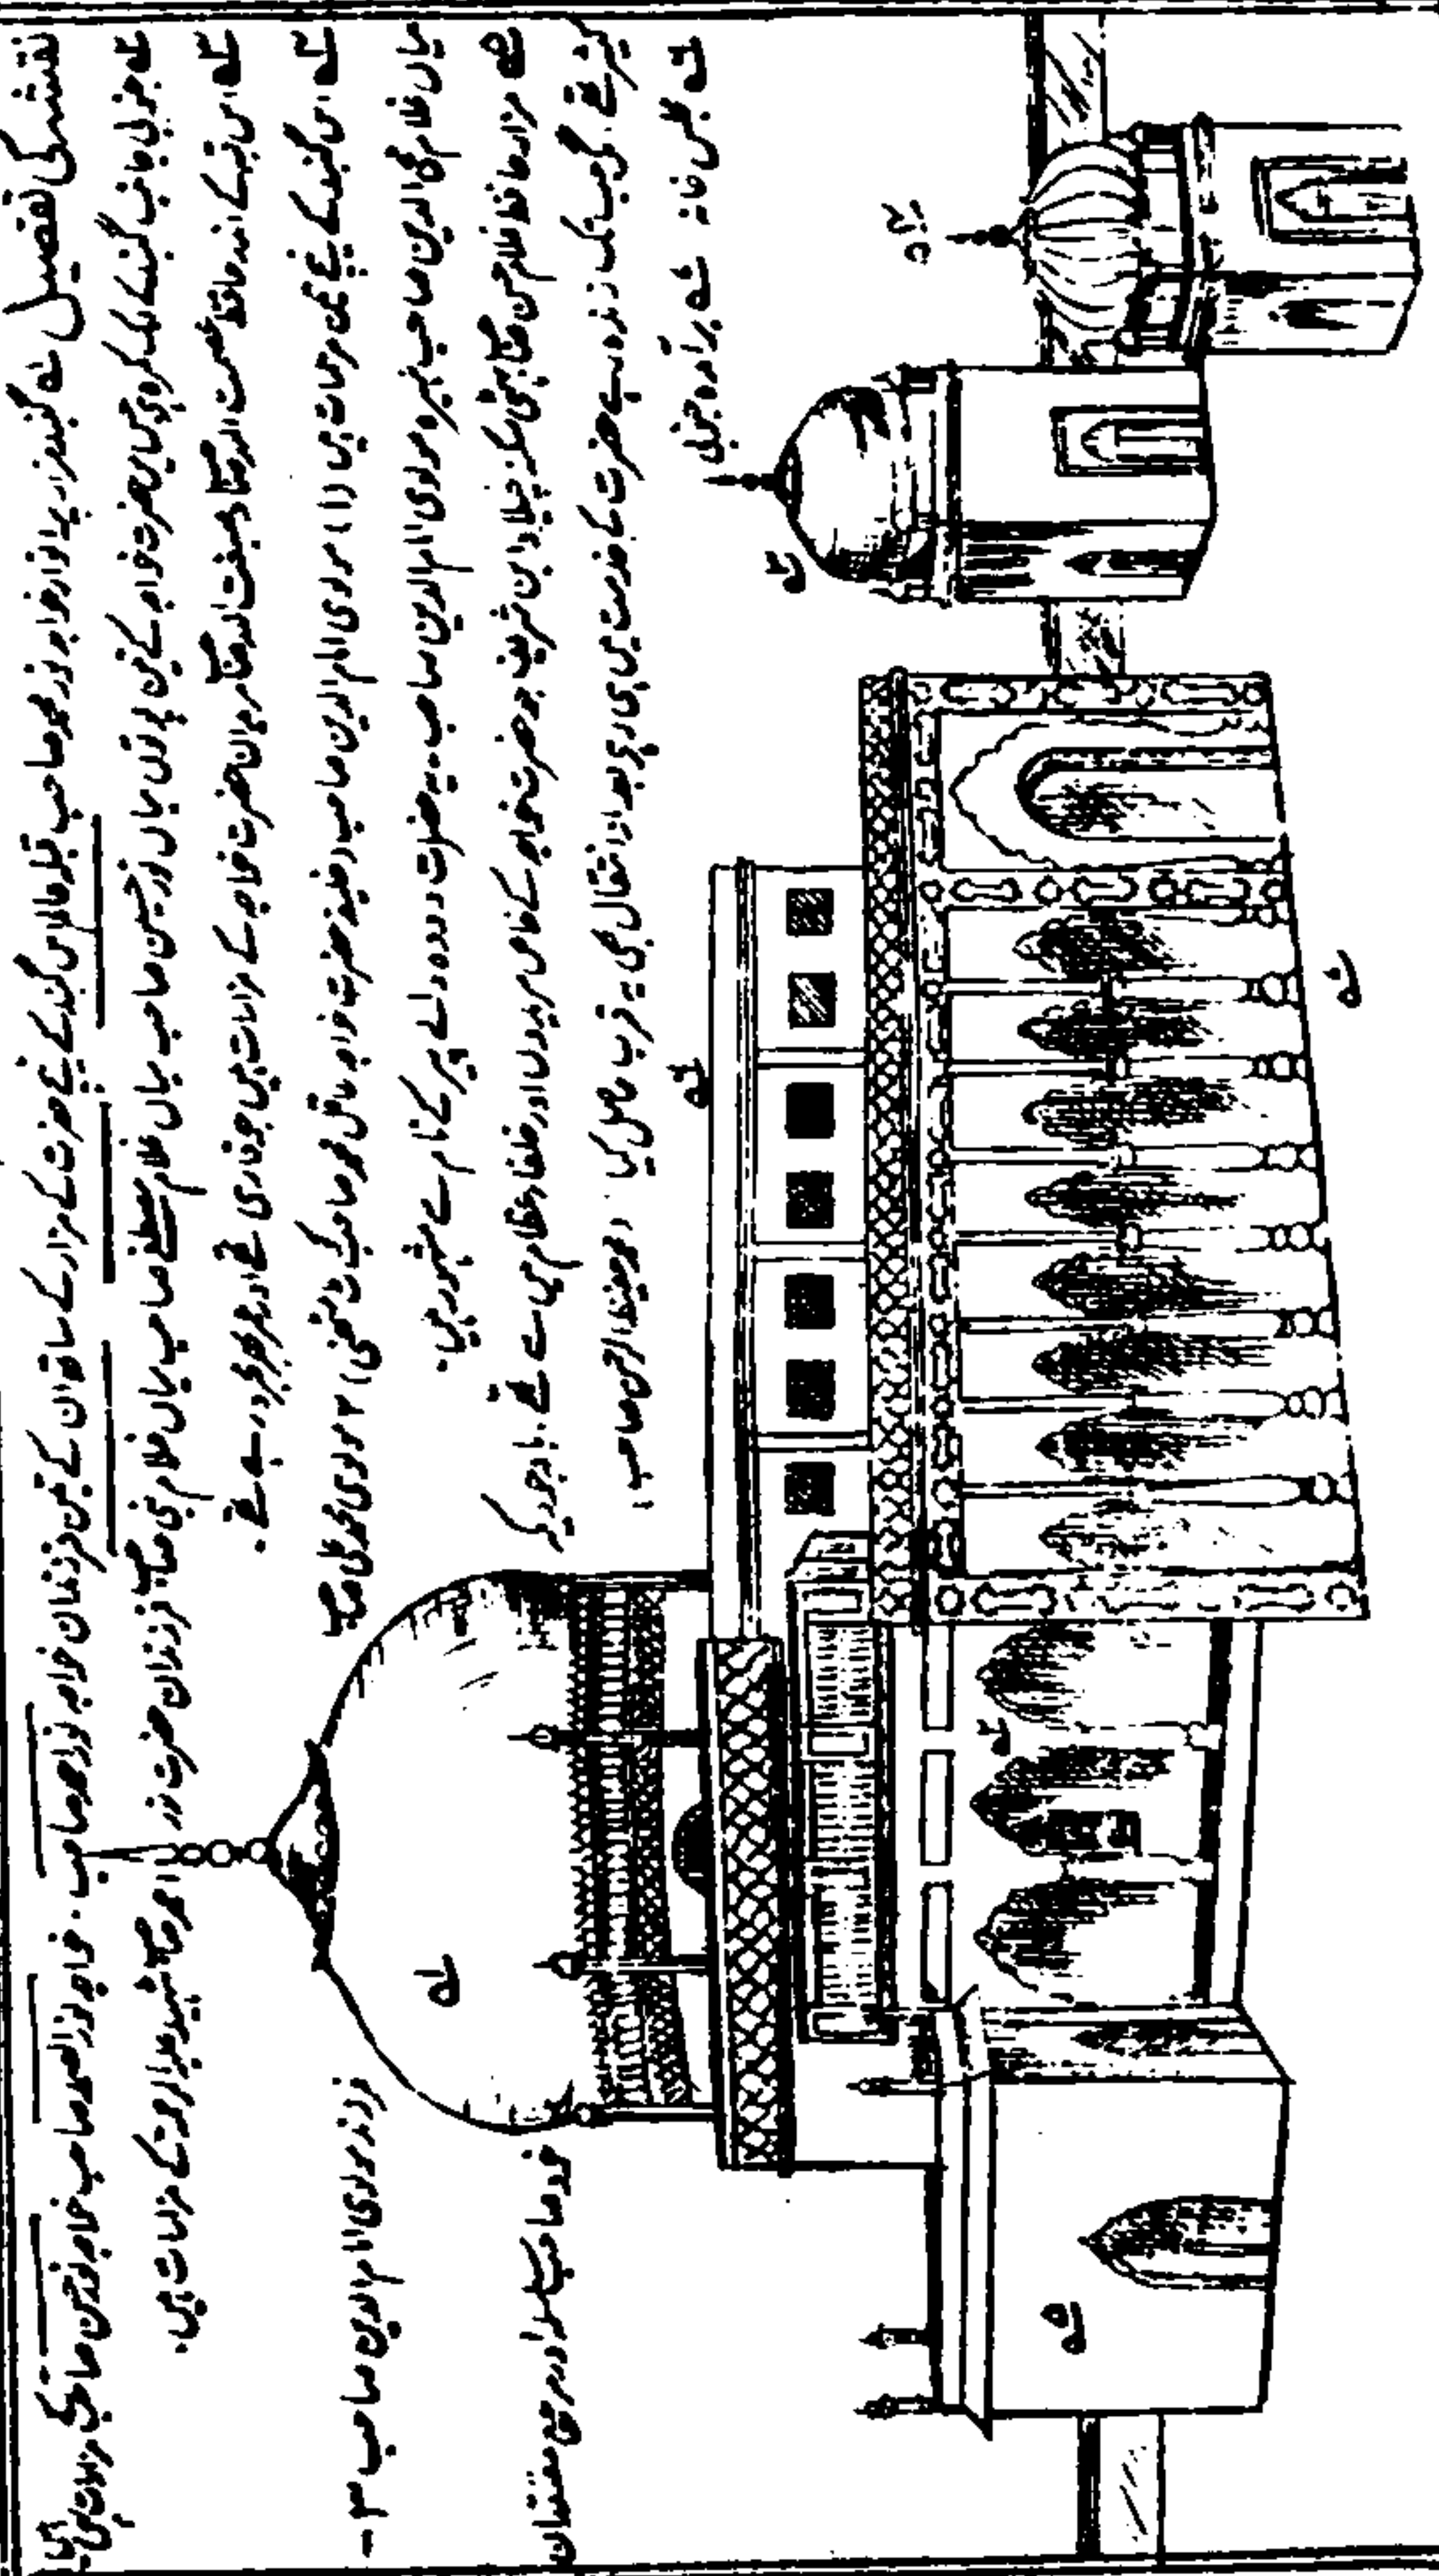 نقشہ کی تفصیل ۱؎ گنبد مزار پر انوار خواجہ نور محمد صاحب قبلہ عالم اس گنبد کے نیچے حضرت کے مزار کے ساتھ ان کے تین فرزندان خواجہ نور احمد صاحب۔ خواجہ نور الصمد صاحب خواجہ نور حسن صاحبؒ کے مزارات ہیں
۲؎ جنوبی جانب گنبد کے ایک کمرہ ہے جس میں حضرت خواجہ کے تین پوتوں میاں نور حسین صاحب میاں غلام مصطفے صاحب میاں غلام نبی صاحبؒ فرزندان حضرت نور الصمد صاحبؒ شہید علیہ الرحمۃ کے مزارات ہیں۔
۳؎ اس قبہ کے اندر حافظ عصمت اللہ صاحبؒ و صبغت اللہ صاحبؒ مریدان حضرت خواجہ کے مزارات ہیں جو قاری تھے اور عمر بھر مجرد رہے تھے۔
۴؎ اس گنبد کے نیچے تین مرقدات ہیں (۱) مولوی امام الدین صاحب (خلیفہ حضرت خواجہ عاقل محمد صاحبؒ کوٹ مٹھنی) ۲ مولوی محمد علی صاحبؒ فرزند مولوی امام الدین صاحب ۳۔
میاں غلام محی الدین صاحب نبیرہ مولوی امام الدین صاحب۔ یہ حضرات ددوہ والے پیر کے نام سے مشہور ہیں۔
۵؎ مزار حافظ غلام حسن صاحبؒ بھٹی سکنہ چیلا واہن شریف جو حضرت خواجہ کے خاص مریدوں اور خلفاء عظام میں سے تھے۔ باوجودیکہ خود صاحب سلسلہ اور مرجع معتقدان
کثیر تھے۔ مگر جب تک زندہ رہے حضرت کے خدمت میں ہی رہے بعد از انتقال بھی یہ قرب حاصل کیا۔ (محمد حفیظ الرحمن صاحب)
۶؎ مجلس خانہ ۷؎ برآمدہ جنوبی
۱؎
۲؎
۳؎
۴؎
۵؎
۶؎
۷؎